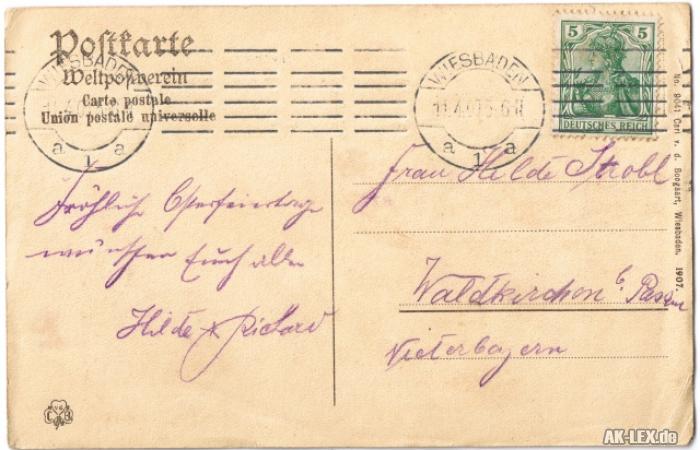 Postkarte
Weltpostverein
Carte postale
Union postale universelle
WIESBADEN
a 1 a
WIESBADEN
11.4. 5-6N
a 1 a
5 5
DEUTSCHES REICH
Fröhliche Osterfeiertage
wünschen Euch allen
Hilde & Richard
Frau Hilde Strobl
Waldkirchen b. Passau
Niederbayern
No. 9041 Carl v. d. Boogaart, Wiesbaden. 1907.
C B
AK-LEX.de